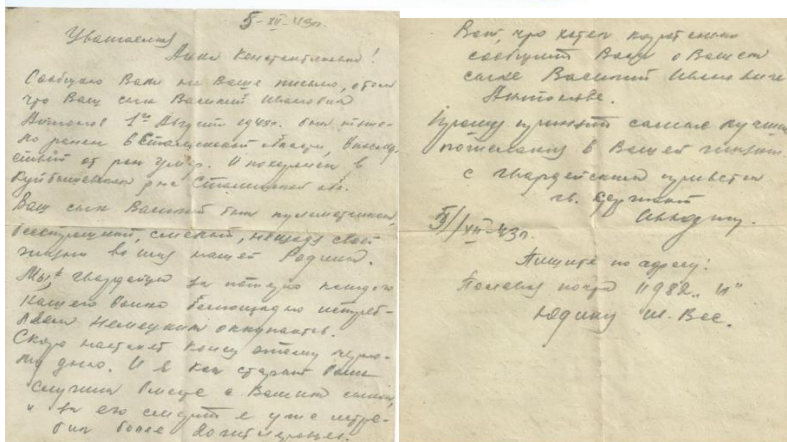 5-XII-43г.
Уважаемая
Анна Константиновна!
Сообщаю Вам на Ваше письмо, о том
что Ваш сын Василий Иванович
Антонов 1го Августа 1943г. был тяже-
ло ранен в Сталинской области, впослед-
ствии от ран умер. И похоронен в
Куйбышевском р-не Сталинской обл.
Ваш сын Василий был пулеметчиком,
бесстрашный, смелый, не щадя своей
жизни во имя нашей Родины.
Мы гвардейцы за потерю каждого
нашего воина беспощадно истреб-
ляем Немецких оккупантов.
Скоро настанет конец этому
дню. И я
служил вместе с Вашим сыном,
и за его смерть я уже истре-
бил более 20 гитлеровцев.
Вот, что хотел
сообщить Вам о Вашем
сыне Василии Ивановиче
Антонове.
Прошу принять самые лучшие
пожелания в Вашей жизни
с гвардейским приветом
гв. сержант
Юдин.
5/XII-43г.
Пишите по адресу:
Полевая почта 11982 "И"
Юдину